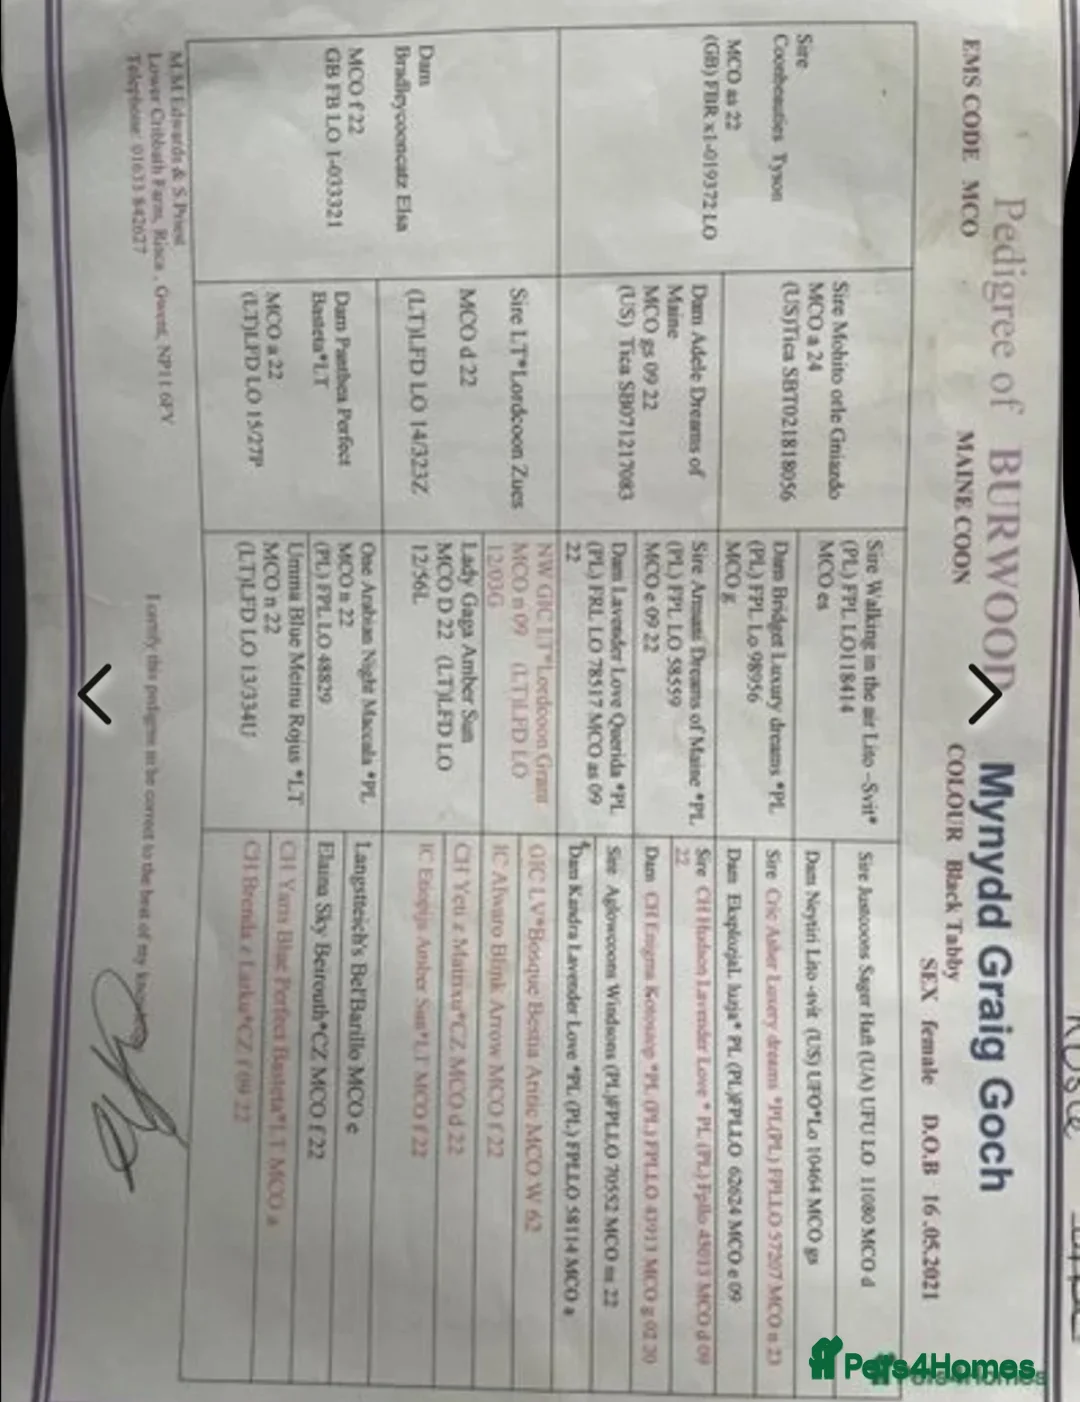 Pedigree of BURWOOD Mynydd Graig Goch
EMS CODE MCO MAINE COON COLOUR Black Tabby
SEX female D.O.B 16.05.2021
Sire
Coonbeauties Tyson
MCO as 22
(GB) FBR x1-019372 LO
Dam
Bradleycooncatz Elsa
MCO f 22
GB FB LO 1-033321
Sire Mohito orle Gniazdo
MCO a 24
(US)Tica SBT021818056
Dam Adele Dreams of
Maine
MCO gs 09 22
(US) Tica SB071217083
Sire LT*Lordcoon Zues
MCO d 22
(LT)LFD LO 14/323Z
Dam Panthea Perfect
Basteta*LT
MCO a 22
(LT)LFD LO 15/27P
Sire Walking in the air Lito -Svit*
(PL) FPL LO118414
MCO es
Dam Bridget Luxury dreams *PL
(PL) FPL Lo 98956
MCO g
Sire Armani Dreams of Maine *PL
(PL) FPL LO 58559
MCO e 09 22
Dam Lavender Love Querida *PL
(PL) FRL LO 78517 MCO as 09
22
NW GIC LT*Lordcoon Grant
MCO n 09 (LT)LFD LO
12/03G
Lady Gaga Amber Sun
MCO D 22 (LT)LFD LO
12/56L
One Arabian Night Maccala *PL
MCO n 22
(PL) FPL LO 48829
Umma Blue Meinu Rojus *LT
MCO n 22
(LT)LFD LO 13/334U
Sire Justcoons Sager Haft (UA) UFU LO 11080 MCO d
Dam Neytiri Lito -svit (US) UFO*Lo 10464 MCO gs
Sire Cric Asher Luxery dreams *PL(PL) FPLLO 57207 MCO n 23
Dam Eksplozjal. Iuzja* PL (PL)FPLLO 62624 MCO e 09
Sire CH Hudson Lavender Love * PL (PL) Fpllo 45013 MCO d 09
22
Dam CH Enigma *PL (PL) FPLLO 43913 MCO g 02 20
Sire Aglowcoons Windsons (PL)FPLLO 70552 MCO ns 22
Dam Kandra Lavender Love *PL (PL) FPLLO 58114 MCO a
GIC LV*Bosque Bestia Artric MCO W 62
IC Alwaro Blink Arrow MCO f 22
CH Yeti z Matrixu*CZ MCO d 22
IC Etiopija Amber Sun*LT MCO f 22
Langstteich's Bel'Barillo MCO e
Elaina Sky Beirouth*CZ MCO f 22
CH Yaris Blue Perfect Basteta*LT MCO a
CH Brenda z Larku*CZ f 09 22
M.M Edwards & S.Priest
Lower Cribbath Farm, Risca , Gwent, NP11 6FY
Telephone 01633 842627
I certify this pedigree to be correct to the best of my knowledge
Pets4Homes